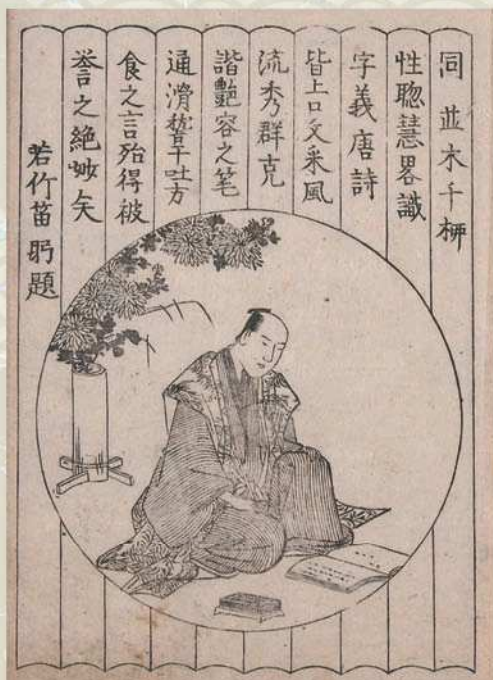 同並木千栁
性聦慧畧識
字義唐詩
皆上口文采風
流秀群克
諧艷容之笔
通滑稽于吐方
食之言殆得被
誉之絶妙矣
若竹笛躬題